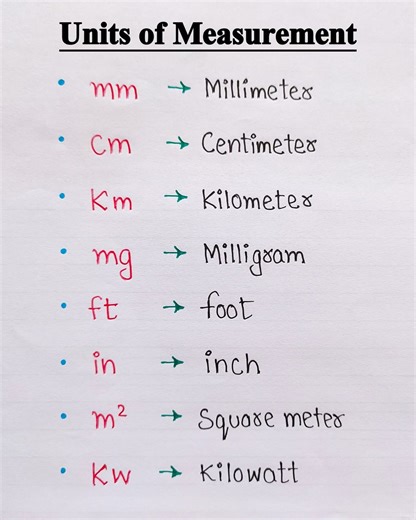 Units of Measurement
• mm → Millimeter
• cm → Centimeter
• Km → Kilometer
• mg → Milligram
• ft → foot
• in → inch
• m² → Square meter
• Kw → Kilowatt